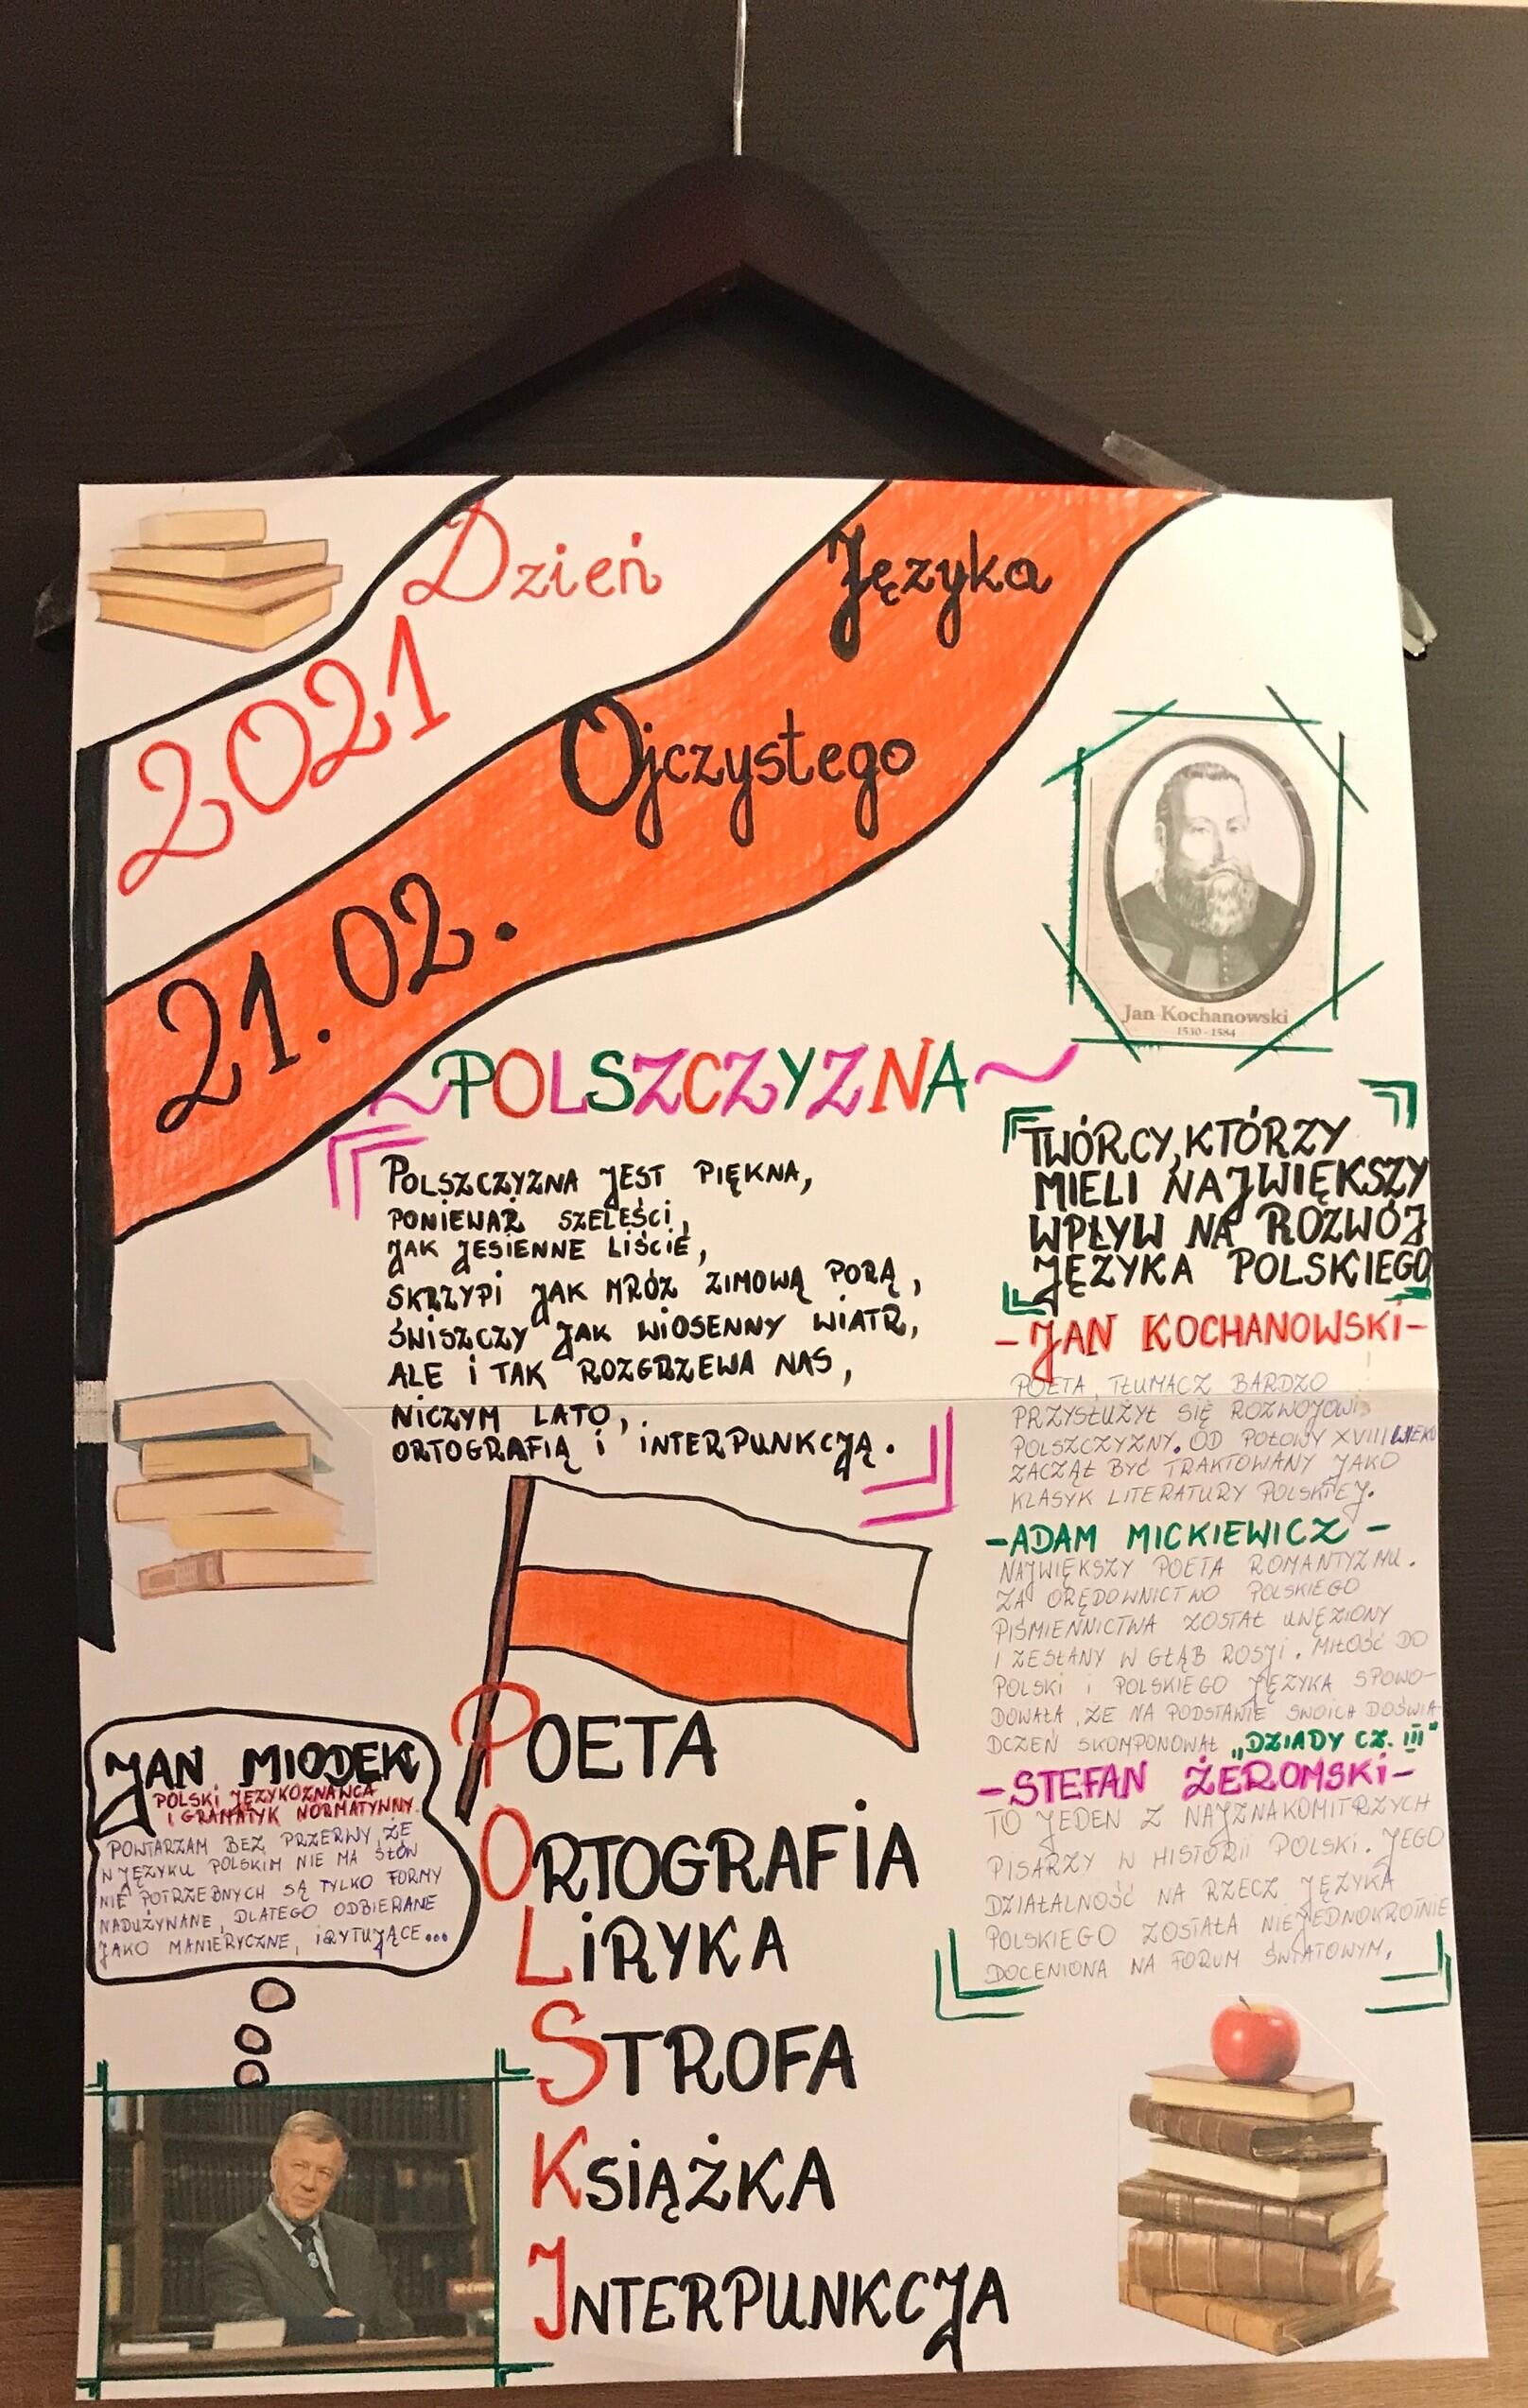 Dzień
Języka
Ojczystego
2021
21.02.
Jan Kochanowski
1530-1584
~POLSZCZYZNA~
POLSZCZYZNA JEST PIĘKNA,
PONIEWAŻ SZELEŚCI,
JAK JESIENNE LIŚCIE,
SKRZYPI JAK MRÓZ ZIMOWĄ PORĄ,
ŚWISZCZY JAK WIOSENNY WIATR,
ALE I TAK ROZGRZEWA NAS,
NICZYM LATO,
ORTOGRAFIĄ I INTERPUNKCJĄ.
TWÓRCY, KTÓRZY
MIELI NAJWIĘKSZY
WPŁYW NA ROZWÓJ
JĘZYKA POLSKIEGO
- JAN KOCHANOWSKI -
POETA, TŁUMACZ BARDZO
PRZYSŁUŻYŁ SIĘ ROZWOJOWI
POLSZCZYZNY. OD POŁOWY XVIII WIEKU
ZACZĄŁ BYĆ TRAKTOWANY JAKO
KLASYK LITERATURY POLSKIEJ.
- ADAM MICKIEWICZ -
NAJWIĘKSZY POETA ROMANTYZMU.
ZA ORĘDOWNICTWO POLSKIEGO
PIŚMIENNICTWA ZOSTAŁ UWĘZIONY
I ZESŁANY W GŁĄB ROSJI. MIŁOŚĆ DO
POLSKI I POLSKIEGO JĘZYKA SPOWO-
DOWAŁA, ŻE NA PODSTAWIE SWOICH DOŚWIA-
DCZEŃ SKOMPONOWAŁ „DZIADY CZ. III"
- STEFAN ŻEROMSKI -
TO JEDEN Z NAJZNAKOMITRZYCH
PISARZY W HISTORII POLSKI. JEGO
DZIAŁALNOŚĆ NA RZECZ JĘZYKA
POLSKIEGO ZOSTAŁA NIEJEDNOKROTNIE
DOCENIONA NA FORUM ŚWIATOWYM.
JAN MIODEK
POLSKI JĘZYKOZNAWCA
I GRAMATYK NORMATYWNY.
POWTARZAM BEZ PRZERWY, ŻE
W JĘZYKU POLSKIM NIE MA SŁÓW
NIE POTRZEBNYCH SĄ TYLKO FORMY
NADUŻYWANE, DLATEGO ODBIERANE
JAKO MANIERYCZNE, IRYTUJĄCE...
POETA
ORTOGRAFIA
LIRYKA
STROFA
KSIĄŻKA
INTERPUNKCJA